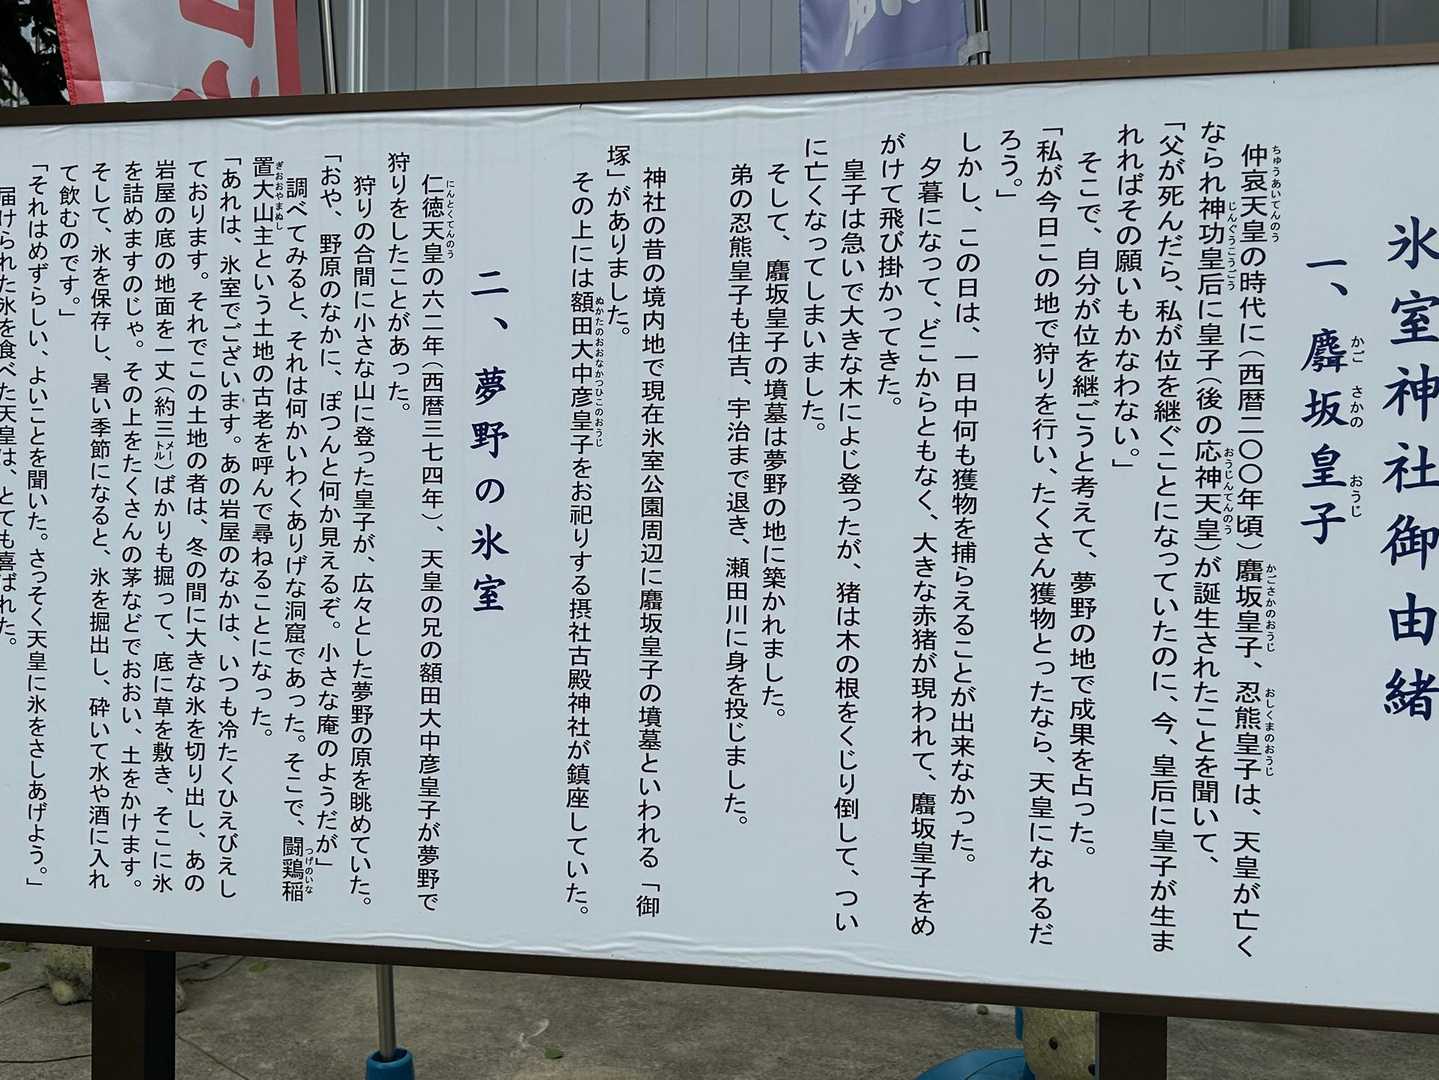 氷室神社御由緒
一、麛坂皇子
かご さかの おうじ
仲哀天皇の時代に(西暦二〇〇年頃)麛坂皇子、忍熊皇子は、天皇が亡く
ちゅうあいてんのう かごさかのおうじ おしくまのおうじ
なられ神功皇后に皇子(後の応神天皇)が誕生されたことを聞いて、
じんぐうこうごう おうじんてんのう
「父が死んだら、私が位を継ぐことになっていたのに、今、皇后に皇子が生ま
れればその願いもかなわない。」
そこで、自分が位を継ごうと考えて、夢野の地で成果を占った。
「私が今日この地で狩りを行い、たくさん獲物とったなら、天皇になれるだ
ろう。」
しかし、この日は、一日中何も獲物を捕らえることが出来なかった。
夕暮になって、どこからともなく、大きな赤猪が現われて、麛坂皇子をめ
がけて飛び掛かってきた。
皇子は急いで大きな木によじ登ったが、猪は木の根をくじり倒して、つい
に亡くなってしまいました。
そして、麛坂皇子の墳墓は夢野の地に築かれました。
弟の忍熊皇子も住吉、宇治まで退き、瀬田川に身を投じました。
神社の昔の境内地で現在氷室公園周辺に麛坂皇子の墳墓といわれる「御
塚」がありました。
その上には額田大中彦皇子をお祀りする摂社古殿神社が鎮座していた。
ぬかたのおおなかつひこのおうじ
二、夢野の氷室
仁徳天皇の六二年(西暦三七四年)、天皇の兄の額田大中彦皇子が夢野で
にんとくてんのう
狩りをしたことがあった。
狩りの合間に小さな山に登った皇子が、広々とした夢野の原を眺めていた。
「おや、野原のなかに、ぽつんと何か見えるぞ。小さな庵のようだが」
調べてみると、それは何かいわくありげな洞窟であった。そこで、闘鶏稲
つげのいな
置大山主という土地の古老を呼んで尋ねることになった。
ぎおおやまぬし
「あれは、氷室でございます。あの岩屋のなかは、いつも冷たくひえびえし
ております。それでこの土地の者は、冬の間に大きな氷を切り出し、あの
岩屋の底の地面を一丈(約三メートル)ばかりも掘って、底に草を敷き、そこに氷
を詰めますのじゃ。その上をたくさんの茅などでおおい、土をかけます。
そして、氷を保存し、暑い季節になると、氷を掘出し、砕いて水や酒に入れ
て飲むのです。」
「それはめずらしい、よいことを聞いた。さっそく天皇に氷をさしあげよう。」
届けられた氷を食べた天皇は、とても喜ばれた。